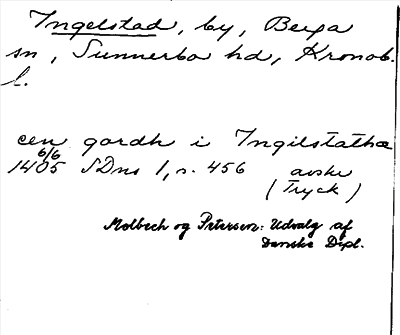 Ingelstad, by, Berga
sn, Sunnerbo hd, Kronob.
l.
een gordh i Ingilstatha
6/6
1405 SDns 1, s. 456 avskr
(Tryck)
Molbech og Petersen: Udvalg af
Danske Dipl.